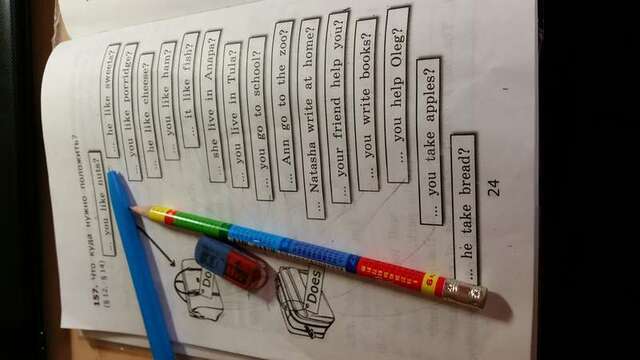 157. Что куда нужно положить?
(§ 12, § 14)
... you like nuts?
... he like sweets?
... you like porridge?
... he like cheese?
... you like ham?
... it like fish?
Do
... she live in Anapa?
... you live in Tula?
... you go to school?
... Ann go to the zoo?
Does
... Natasha write at home?
... your friend help you?
... you write books?
... you help Oleg?
... you take apples?
... he take bread?
24